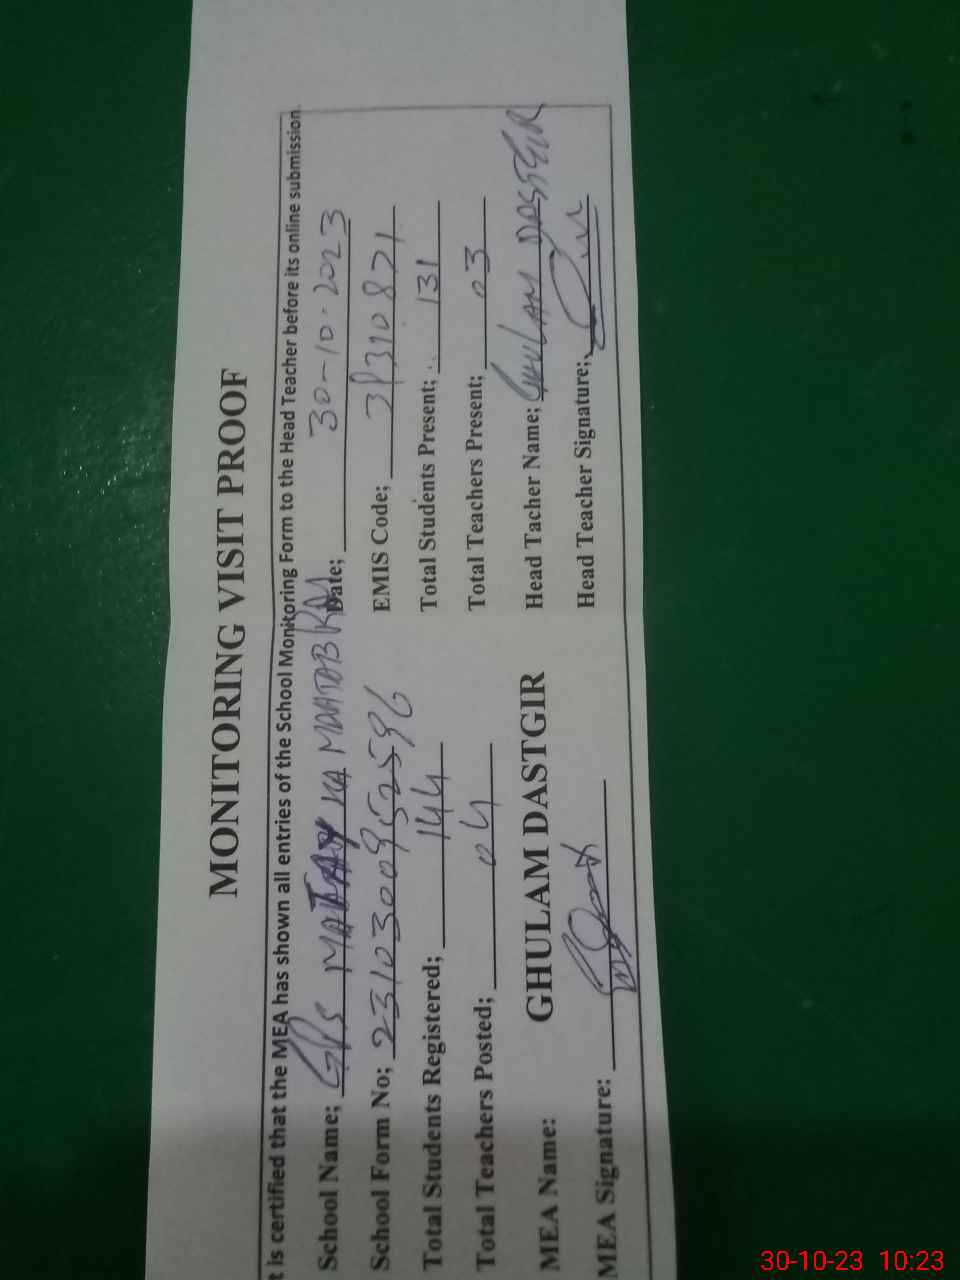 MONITORING VISIT PROOF
t is certified that the MEA has shown all entries of the School Monitoring Form to the Head Teacher before its online submission.
School Name; GPS KA MAHTAB Date; 30-10-2023
School Form No; 2310300952596 EMIS Code;
Total Students Registered; 144 Total Students Present; 131
Total Teachers Posted; 04 Total Teachers Present; 03
MEA Name: GHULAM DASTGIR Head Tacher Name; GHULAM DASTGIR
MEA Signature: Head Teacher Signature;
30-10-23 10:23